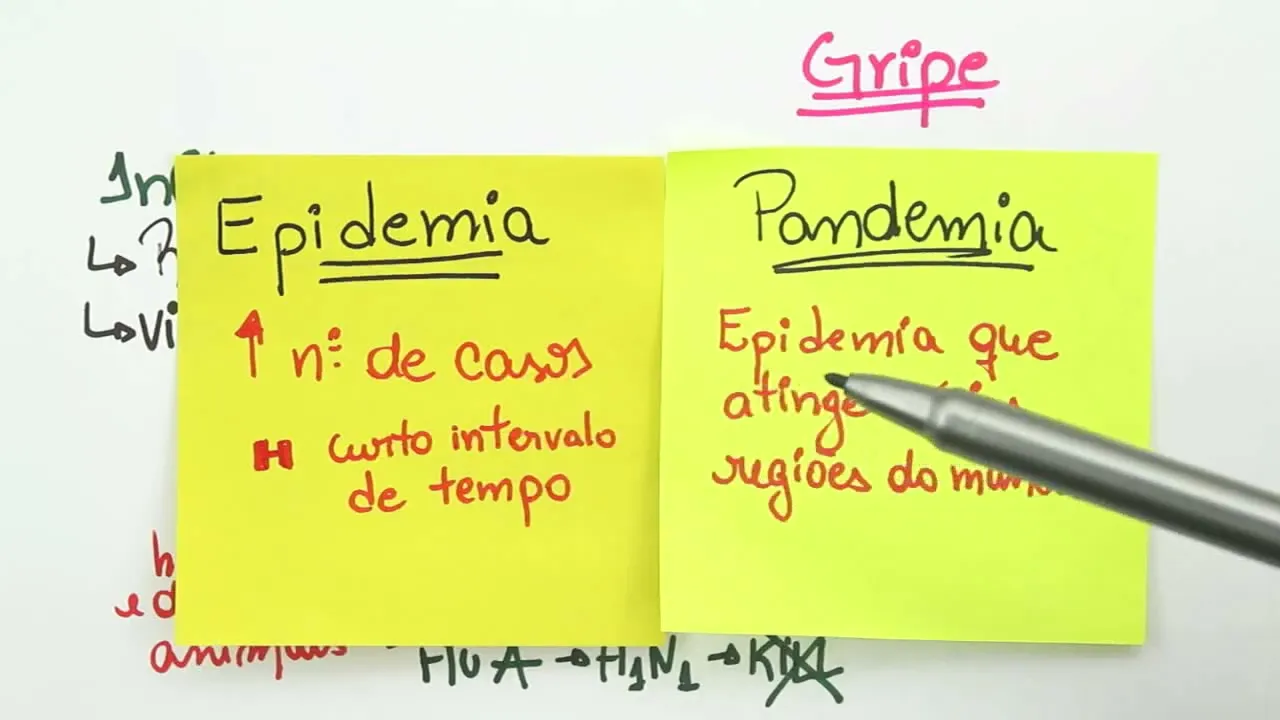 Gripe
Epidemia
↑ nº de casos
curto intervalo
de tempo
Pandemia
Epidemia que
atinge
regiões do
animais
A → H1N1 →